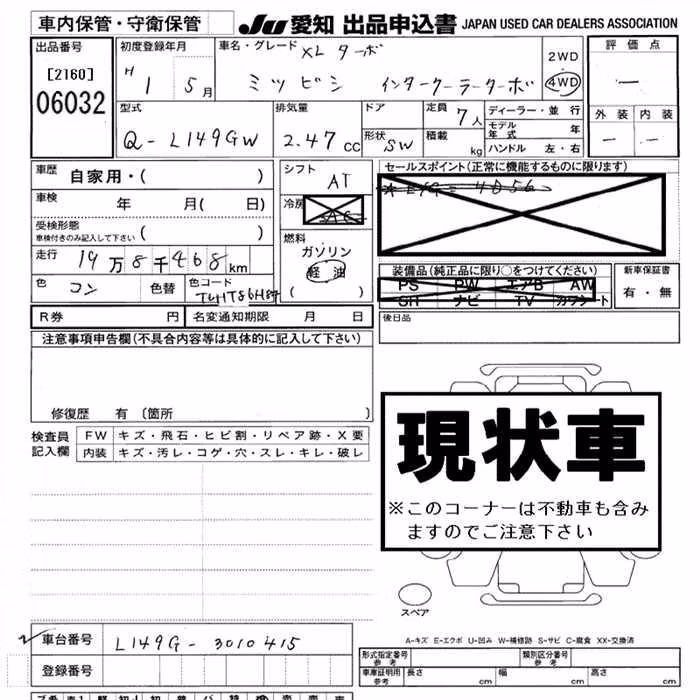 車内保管・守衛保管
JU 愛知 出品申込書 JAPAN USED CAR DEALERS ASSOCIATION
出品番号
[2160]
06032
初度登録年月
H 1 5月
車名・グレード
XL ターボ
ミツビシ インタークーラーターボ
2WD
4WD
評価点
―
外装 内装
― ―
型式
Q-L149GW
排気量
2.47cc
ドア
形状 SW
定員 7人
積載 kg
ディーラー・並行
モデル年式 年
ハンドル 左・右
車歴
自家用・( )
車検 年 月( 日)
受検形態
車検付きのみ記入して下さい ( )
走行 19万8千468km
色 コン 色替 色コード
シフト
AT
冷房
AC
燃料
ガソリン
軽油
( )
セールスポイント(正常に機能するものに限ります)
*E/G=4D56
装備品(純正品に限り○をつけてください)
PS PW エアB AW
SR ナビ TV カワシート
新車保証書
有・無
R券 円 名変通知期限 月 日
後日品
注意事項申告欄(不具合内容等は具体的に記入して下さい)
修復歴 有 〔箇所 〕
検査員記入欄
FW キズ・飛石・ヒビ割・リペア跡・X要
内装 キズ・汚レ・コゲ・穴・スレ・キレ・破レ
現状車
※このコーナーは不動車も含み
ますのでご注意下さい
スペア
A-キズ E-エクボ U-凹み W-補修跡 S-サビ C-腐食 XX-交換済
車台番号 L149G-3010415
登録番号
形式指定番号 参考
類別区分番号 参考
車庫証明用 参考 長さ cm 幅 cm 高さ cm